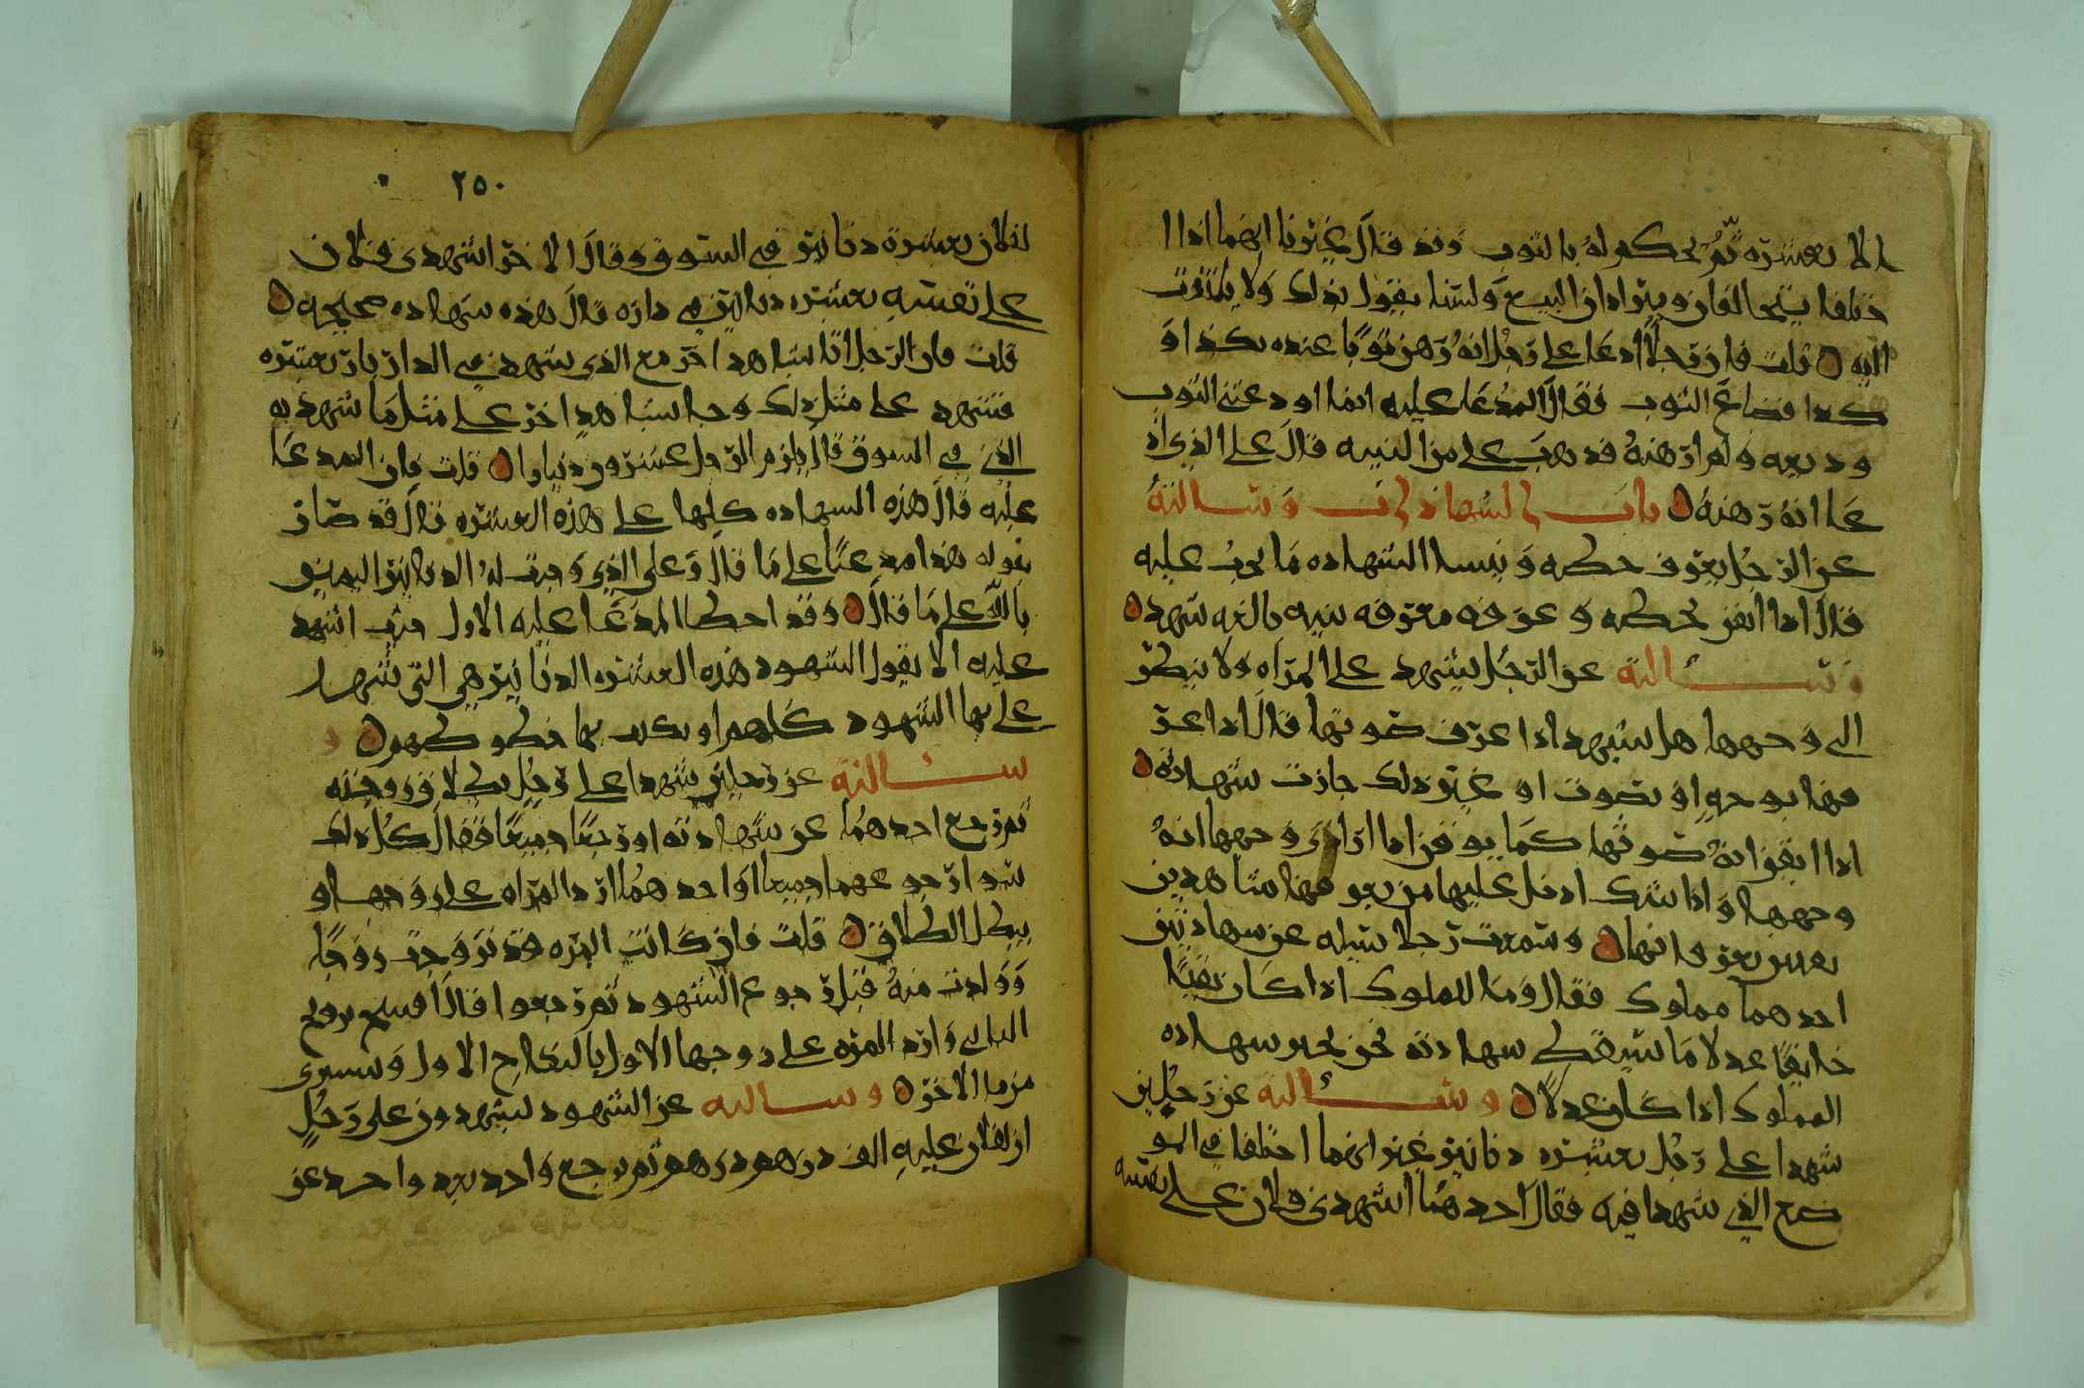 الا بعشره ثم يحكم له بالثوب وقد قال غيرنا انهما اذا ا
ختلفا يتحالفان ويترادان البيع ولسنا نقول بذلك ولا يلتفت
اليه قلت فان رجلا ادعا على رجل انه رهن ثوبا عنده بكذا و
كدا فضاع الثوب فقال المدعا عليه انما اودعتني الثوب
وديعه ولم ارهنه قد هب على من البينه قال على الذي اد
عا انه رهنه باب الشهادات وسالته
عن الرجل يعرف حكمه وينسا الشهاده ما يجب عليه
قال اذا ايقن بحكمه وعرفه معرفه بينه بالغه شهد
وسالته عن الرجل يشهد على المراه ولا ينظر
الى وجهها هل يشهد اذا عرف صوتها قال اذا عر
فها بوجه او بصوت او غير ذلك جازت شهادته
اذا ايقن انه صوتها كما يوقن اذا ارا وجهها انه
وجهها واذا شك ادخل عليها من يعرفها شاهدين
بعين يعرفانها وسمعت رجلا سيله عن شهادتين
احدهما مملوك فقال وما للملوك اذا كان تقيا
خايفا عدلا ما يسقط شهادته نحن نجيز شهاده
المملوك اذا كان عدلا وسالته عن رجلين
شهدا على رجل بعشره دنانير غير انهما اختلفا في المو
ضع الذي شهدا فيه فقال احدهما اشهدني فلان على نفسه
٢٥٠
لفلان بعشرة دنانير في السوق وقال الاخر اشهدني فلان
على نفسه بعشره دنانير في داره قال هذه شهاده صحيحه
قلت فان الرجل اتا بشاهد اخر مع الذي شهد في الدار بان بعشره
فشهد على مثل ذلك وجا شاهد اخر على مثل ما شهد به
الذي في السوق قال يلزم الرجل عشرون دينارا قلت فان المدعا
عليه قال هذه الشهاده كلها على هذه العشره قال قد صار
بقوله هذا مدعيا على ما قال وعلى الذي وجبت له الدنانير اليمين
بالله على ما قال وقد اخطا المدعا عليه الاول حيث اشهد
عليه الا يقول الشهود هذه العشره الدنانير هي التي شهد
على بها الشهود كلهم او يكتب بها
سالته عن رجلين شهدا على رجل بطلاق زوجته
ثم رجع احدهما عن شهادته او رجعا جميعا فقال كل ذلك
سوا ارجع عنهما جميعا او احدهما ارد المراه على زوجها و
يبطل الطلاق قلت فان كانت المره قد تزوجت زوجا
وولدت منه قبل رجوع الشهود ثم رجعوا قال افسخ تزويج
الثاني وارد المره على زوجها الاول بالنكاح الاول وتستبرى
من ما الاخر وسالته عن الشهود يشهدون على رجل
ان لفلان عليه الف درهم درهم ثم يرجع واحد بعد واحد عن